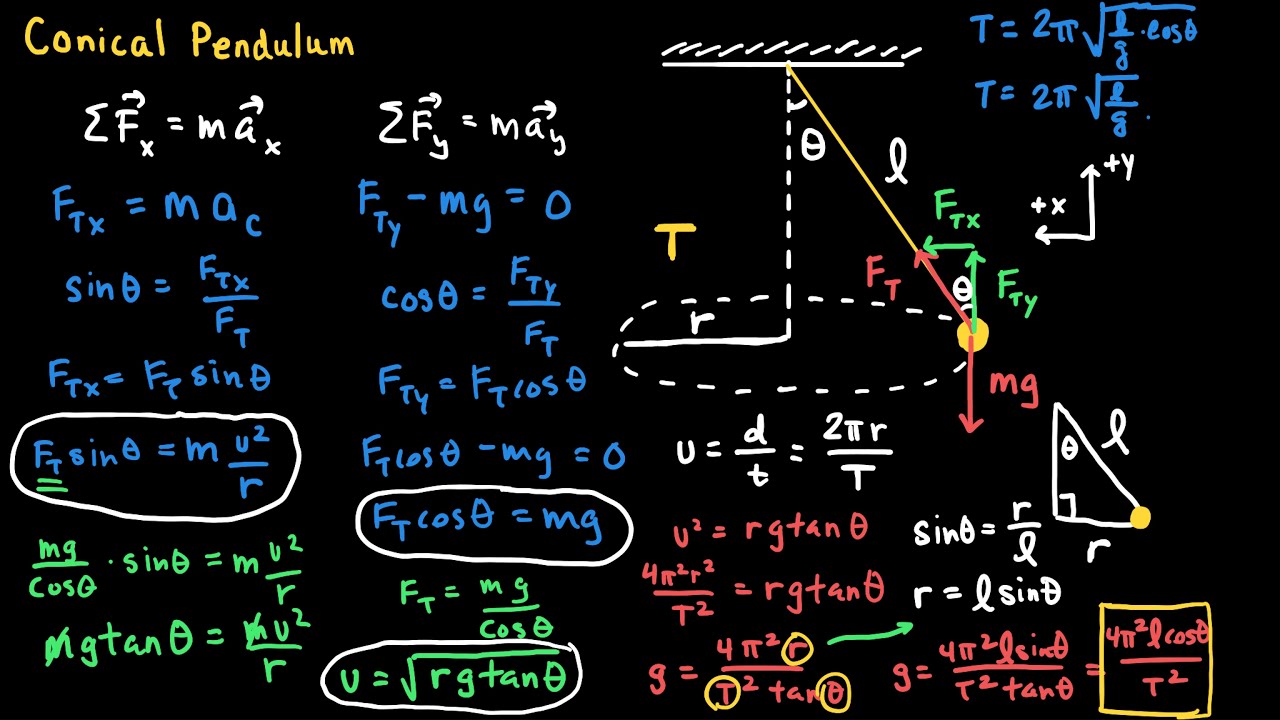 Conical Pendulum
ΣF⃗x = ma⃗x
FTx = mac
sinθ = FTx/FT
FTx = FT sinθ
FT sinθ = m υ²/r
mg/cosθ · sinθ = m υ²/r
mg tanθ = mυ²/r
ΣF⃗y = ma⃗y
FTy − mg = 0
cosθ = FTy/FT
FTy = FT cosθ
FT cosθ − mg = 0
FT cosθ = mg
FT = mg/cosθ
υ = √(rg tanθ)
T = 2π √(l/g · cosθ)
T = 2π √(l/g)
θ
l
T
r
FTx
FT
θ
FTy
mg
+y
+x
υ = d/t = 2πr/T
υ² = rg tanθ
4π²r²/T² = rg tanθ
g = 4π²r/T² tanθ
θ
l
r
sinθ = r/l
r = l sinθ
g = 4π²l sinθ/T² tanθ = 4π²l cosθ/T²